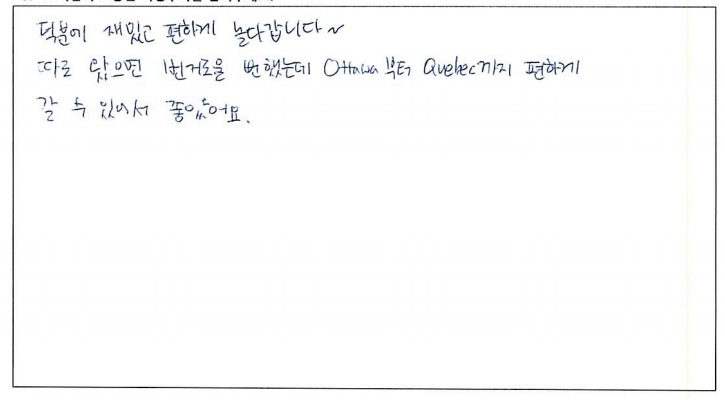 덕분에 재밌고 편하게 놀다갑니다~
따로 왔으면 번거로울 뻔했는데 Ottawa부터 Quebec까지 편하게
갈 수 있어서 좋았어요.